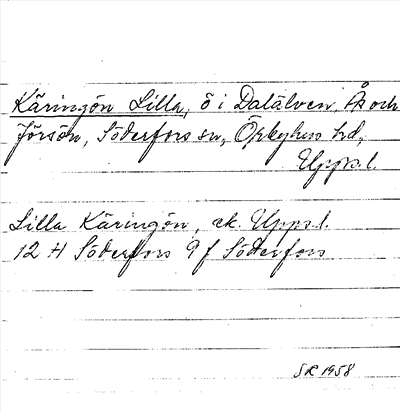 Käringön Lilla, ö i Dalälven, Ås och
Jörsön, Söderfors sn, Örbyhus hd,
Upps.l.
Lilla Käringön, ek. Upps.l.
12 H Söderfors 9 f Söderfors
SR 1958